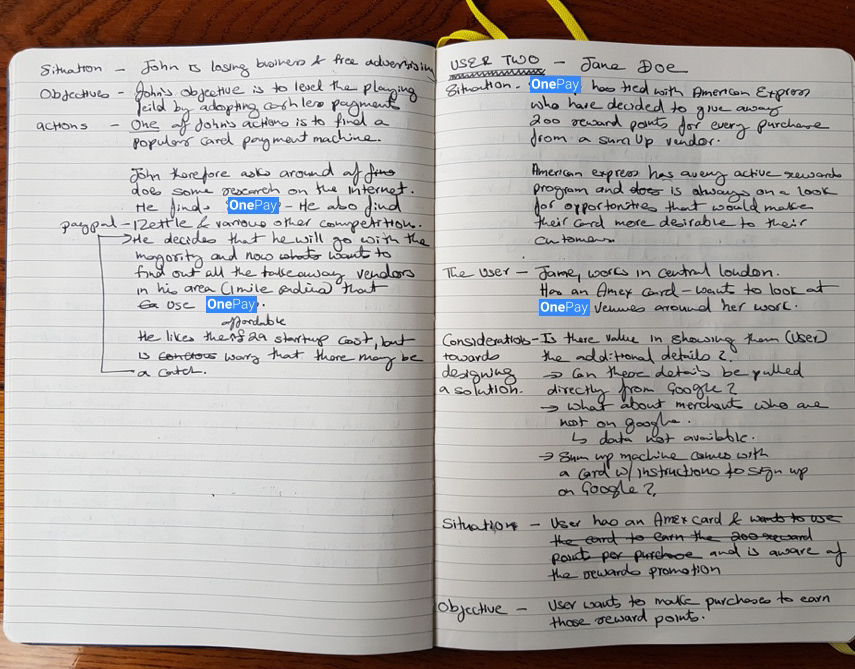 Situation - John is losing business & free advertising
Objectives - John's objective is to level the playing
feild by adopting cashless payments
actions - One of John's actions is to find a
popular card payment machine.
John therefore asks around af
does some research on the internet.
He finds OnePay - He also find
paypal - Zettle & various other competition.
He decides that he will go with the
majority and now whats wants to
find out all the takeaway vendors
in his area (1mile radius) that
Ea use OnePay.
affordable
He likes the £29 startup cost, but
is concious wary that there may be
a catch.
USER TWO - Jane Doe
Situation. OnePay has tied with American Express
who have decided to give away
200 reward points for every purchase
from a Sum Up vendor.
American express has a very active rewards
program and does is always on a look
for opportunities that would make
their card more desirable to their
customers
The user - Jane, works in central london.
Has an Amex card - wants to look at
OnePay venues around her work.
Considerations - Is there value in showing them (User)
towards the additional details?
designing → Can these details be pulled
a solution. directly from Google?
→ what about merchants who are
not on google.
↳ data not available.
→ Sum up machine comes with
a card w/ instructions to sign up
on Google?
Situation - User has an Amex card & wants to use
the card to earn the 200 reward
point per purchase and is aware of
the rewards promotion
Objective - User wants to make purchases to earn
those reward points.